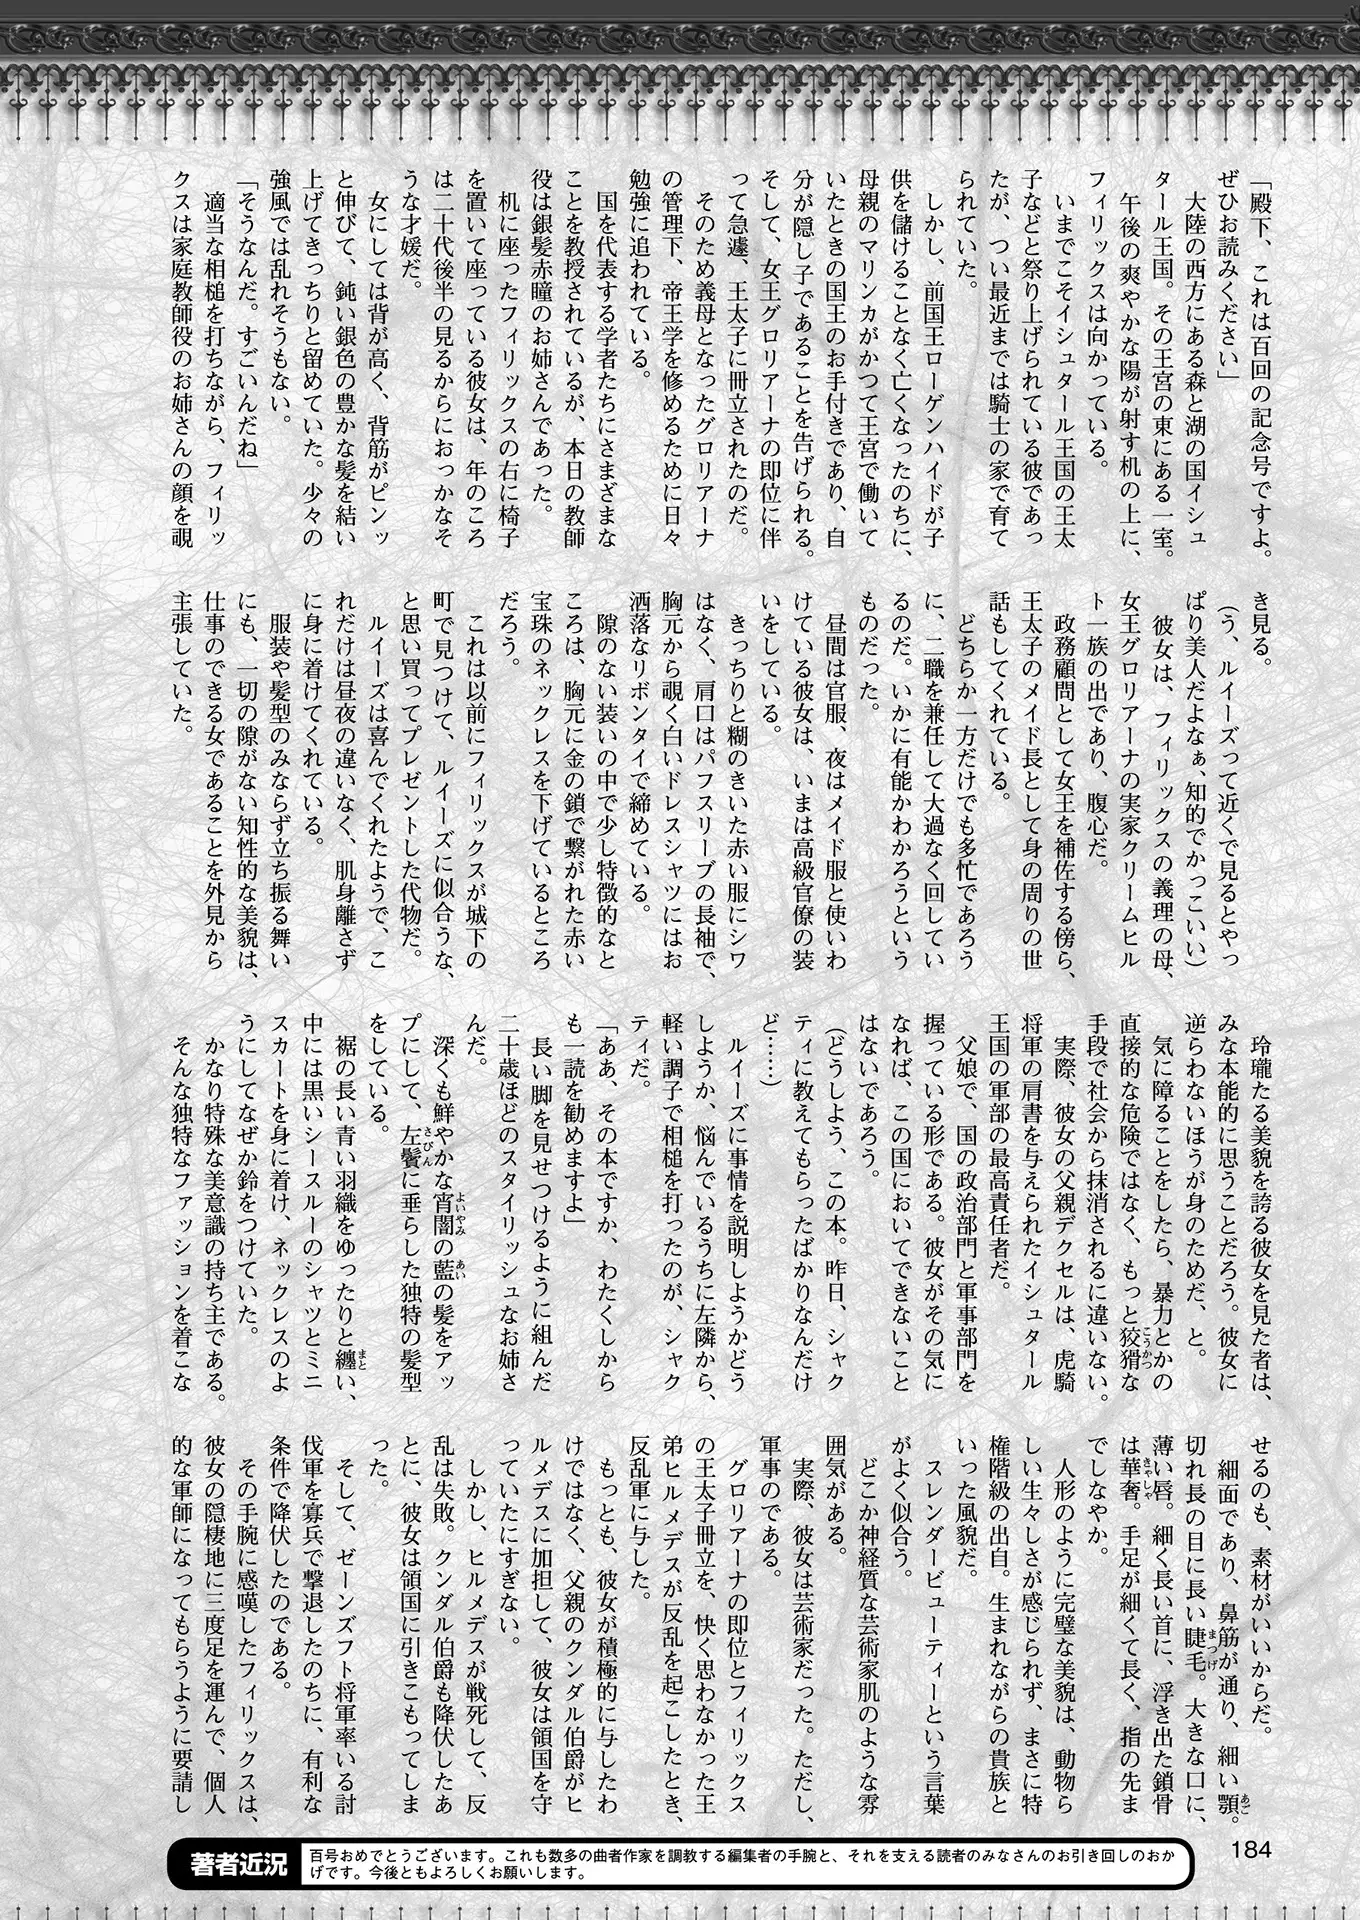 「殿下、これは百回の記念号ですよ。
ぜひお読みください」
　大陸の西方にある森と湖の国イシュ
タール王国。その王宮の東にある一室。
　午後の爽やかな陽が射す机の上に、
フィリックスは向かっている。
　いまでこそイシュタール王国の王太
子などと祭り上げられている彼であっ
たが、つい最近までは騎士の家で育て
られていた。
　しかし、前国王ローゲンハイドが子
供を儲けることなく亡くなったのちに、
母親のマリンカがかつて王宮で働いて
いたときの国王のお手付きであり、自
分が隠し子であることを告げられる。
そして、女王グロリアーナの即位に伴
って急遽、王太子に冊立されたのだ。
　そのため義母となったグロリアーナ
の管理下、帝王学を修めるために日々
勉強に追われている。
　国を代表する学者たちにさまざまな
ことを教授されているが、本日の教師
役は銀髪赤瞳のお姉さんであった。
　机に座ったフィリックスの右に椅子
を置いて座っている彼女は、年のころ
は二十代後半の見るからにおっかなそ
うな才媛だ。
　女にしては背が高く、背筋がピンッ
と伸びて、鈍い銀色の豊かな髪を結い
上げてきっちりと留めていた。少々の
強風では乱れそうもない。
「そうなんだ。すごいんだね」
　適当な相槌を打ちながら、フィリッ
クスは家庭教師役のお姉さんの顔を覗
き見る。
（う、ルイーズって近くで見るとやっ
ぱり美人だよなぁ、知的でかっこいい）
　彼女は、フィリックスの義理の母、
女王グロリアーナの実家クリームヒル
ト一族の出であり、腹心だ。
　政務顧問として女王を補佐する傍ら、
王太子のメイド長として身の周りの世
話もしてくれている。
　どちらか一方だけでも多忙であろう
に、二職を兼任して大過なく回してい
るのだ。いかに有能かわかろうという
ものだった。
　昼間は官服、夜はメイド服と使いわ
けている彼女は、いまは高級官僚の装
いをしている。
　きっちりと糊のきいた赤い服にシワ
はなく、肩口はパフスリーブの長袖で、
胸元から覗く白いドレスシャツにはお
洒落なリボンタイで締めている。
　隙のない装いの中で少し特徴的なと
ころは、胸元に金の鎖で繋がれた赤い
宝珠のネックレスを下げているところ
だろう。
　これは以前にフィリックスが城下の
町で見つけて、ルイーズに似合うな、
と思い買ってプレゼントした代物だ。
　ルイーズは喜んでくれたようで、こ
れだけは昼夜の違いなく、肌身離さず
に身に着けてくれている。
　服装や髪型のみならず立ち振る舞い
にも、一切の隙がない知性的な美貌は、
仕事のできる女であることを外見から
主張していた。
　玲瓏たる美貌を誇る彼女を見た者は、
みな本能的に思うことだろう。彼女に
逆らわないほうが身のためだ、と。
　気に障ることをしたら、暴力とかの
直接的な危険ではなく、もっと狡猾な
手段で社会から抹消されるに違いない。
　実際、彼女の父親デクセルは、虎騎
将軍の肩書を与えられたイシュタール
王国の軍部の最高責任者だ。
　父娘で、国の政治部門と軍事部門を
握っている形である。彼女がその気に
なれば、この国においてできないこと
はないであろう。
（どうしよう、この本。昨日、シャク
ティに教えてもらったばかりなんだけ
ど……）
　ルイーズに事情を説明しようかどう
しようか、悩んでいるうちに左隣から、
軽い調子で相槌を打ったのが、シャク
ティだ。
「ああ、その本ですか、わたくしから
も一読を勧めますよ」
　長い脚を見せつけるように組んだ
二十歳ほどのスタイリッシュなお姉さ
んだ。
　深くも鮮やかな宵闇の藍の髪をアッ
プにして、左鬢に垂らした独特の髪型
をしている。
　裾の長い青い羽織をゆったりと纏い、
中には黒いシースルーのシャツとミニ
スカートを身に着け、ネックレスのよ
うにしてなぜか鈴をつけていた。
　かなり特殊な美意識の持ち主である。
そんな独特なファッションを着こな
せるのも、素材がいいからだ。
　細面であり、鼻筋が通り、細い顎。
切れ長の目に長い睫毛。大きな口に、
薄い唇。細く長い首に、浮き出た鎖骨
は華奢。手足が細くて長く、指の先ま
でしなやか。
　人形のように完璧な美貌は、動物ら
しい生々しさが感じられず、まさに特
権階級の出自。生まれながらの貴族と
いった風貌だ。
　スレンダービューティーという言葉
がよく似合う。
　どこか神経質な芸術家肌のような雰
囲気がある。
　実際、彼女は芸術家だった。ただし、
軍事のである。
　グロリアーナの即位とフィリックス
の王太子冊立を、快く思わなかった王
弟ヒルメデスが反乱を起こしたとき、
反乱軍に与した。
　もっとも、彼女が積極的に与したわ
けではなく、父親のクンダル伯爵がヒ
ルメデスに加担して、彼女は領国を守
っていたにすぎない。
　しかし、ヒルメデスが戦死して、反
乱は失敗。クンダル伯爵も降伏したあ
とに、彼女は領国に引きこもってしま
った。
　そして、ゼーンズフト将軍率いる討
伐軍を寡兵で撃退したのちに、有利な
条件で降伏したのである。
　その手腕に感嘆したフィリックスは、
彼女の隠棲地に三度足を運んで、個人
的な軍師になってもらうように要請し
184
著者近況
百号おめでとうございます。これも数多の曲者作家を調教する編集者の手腕と、それを支える読者のみなさんのお引き回しのおか
げです。今後ともよろしくお願いします。